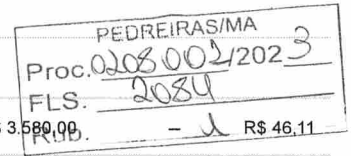 PEDREIRAS/MA
Proc. 0208002/2023
FLS. 2084
3.580,00 RUB. – R$ 46,11